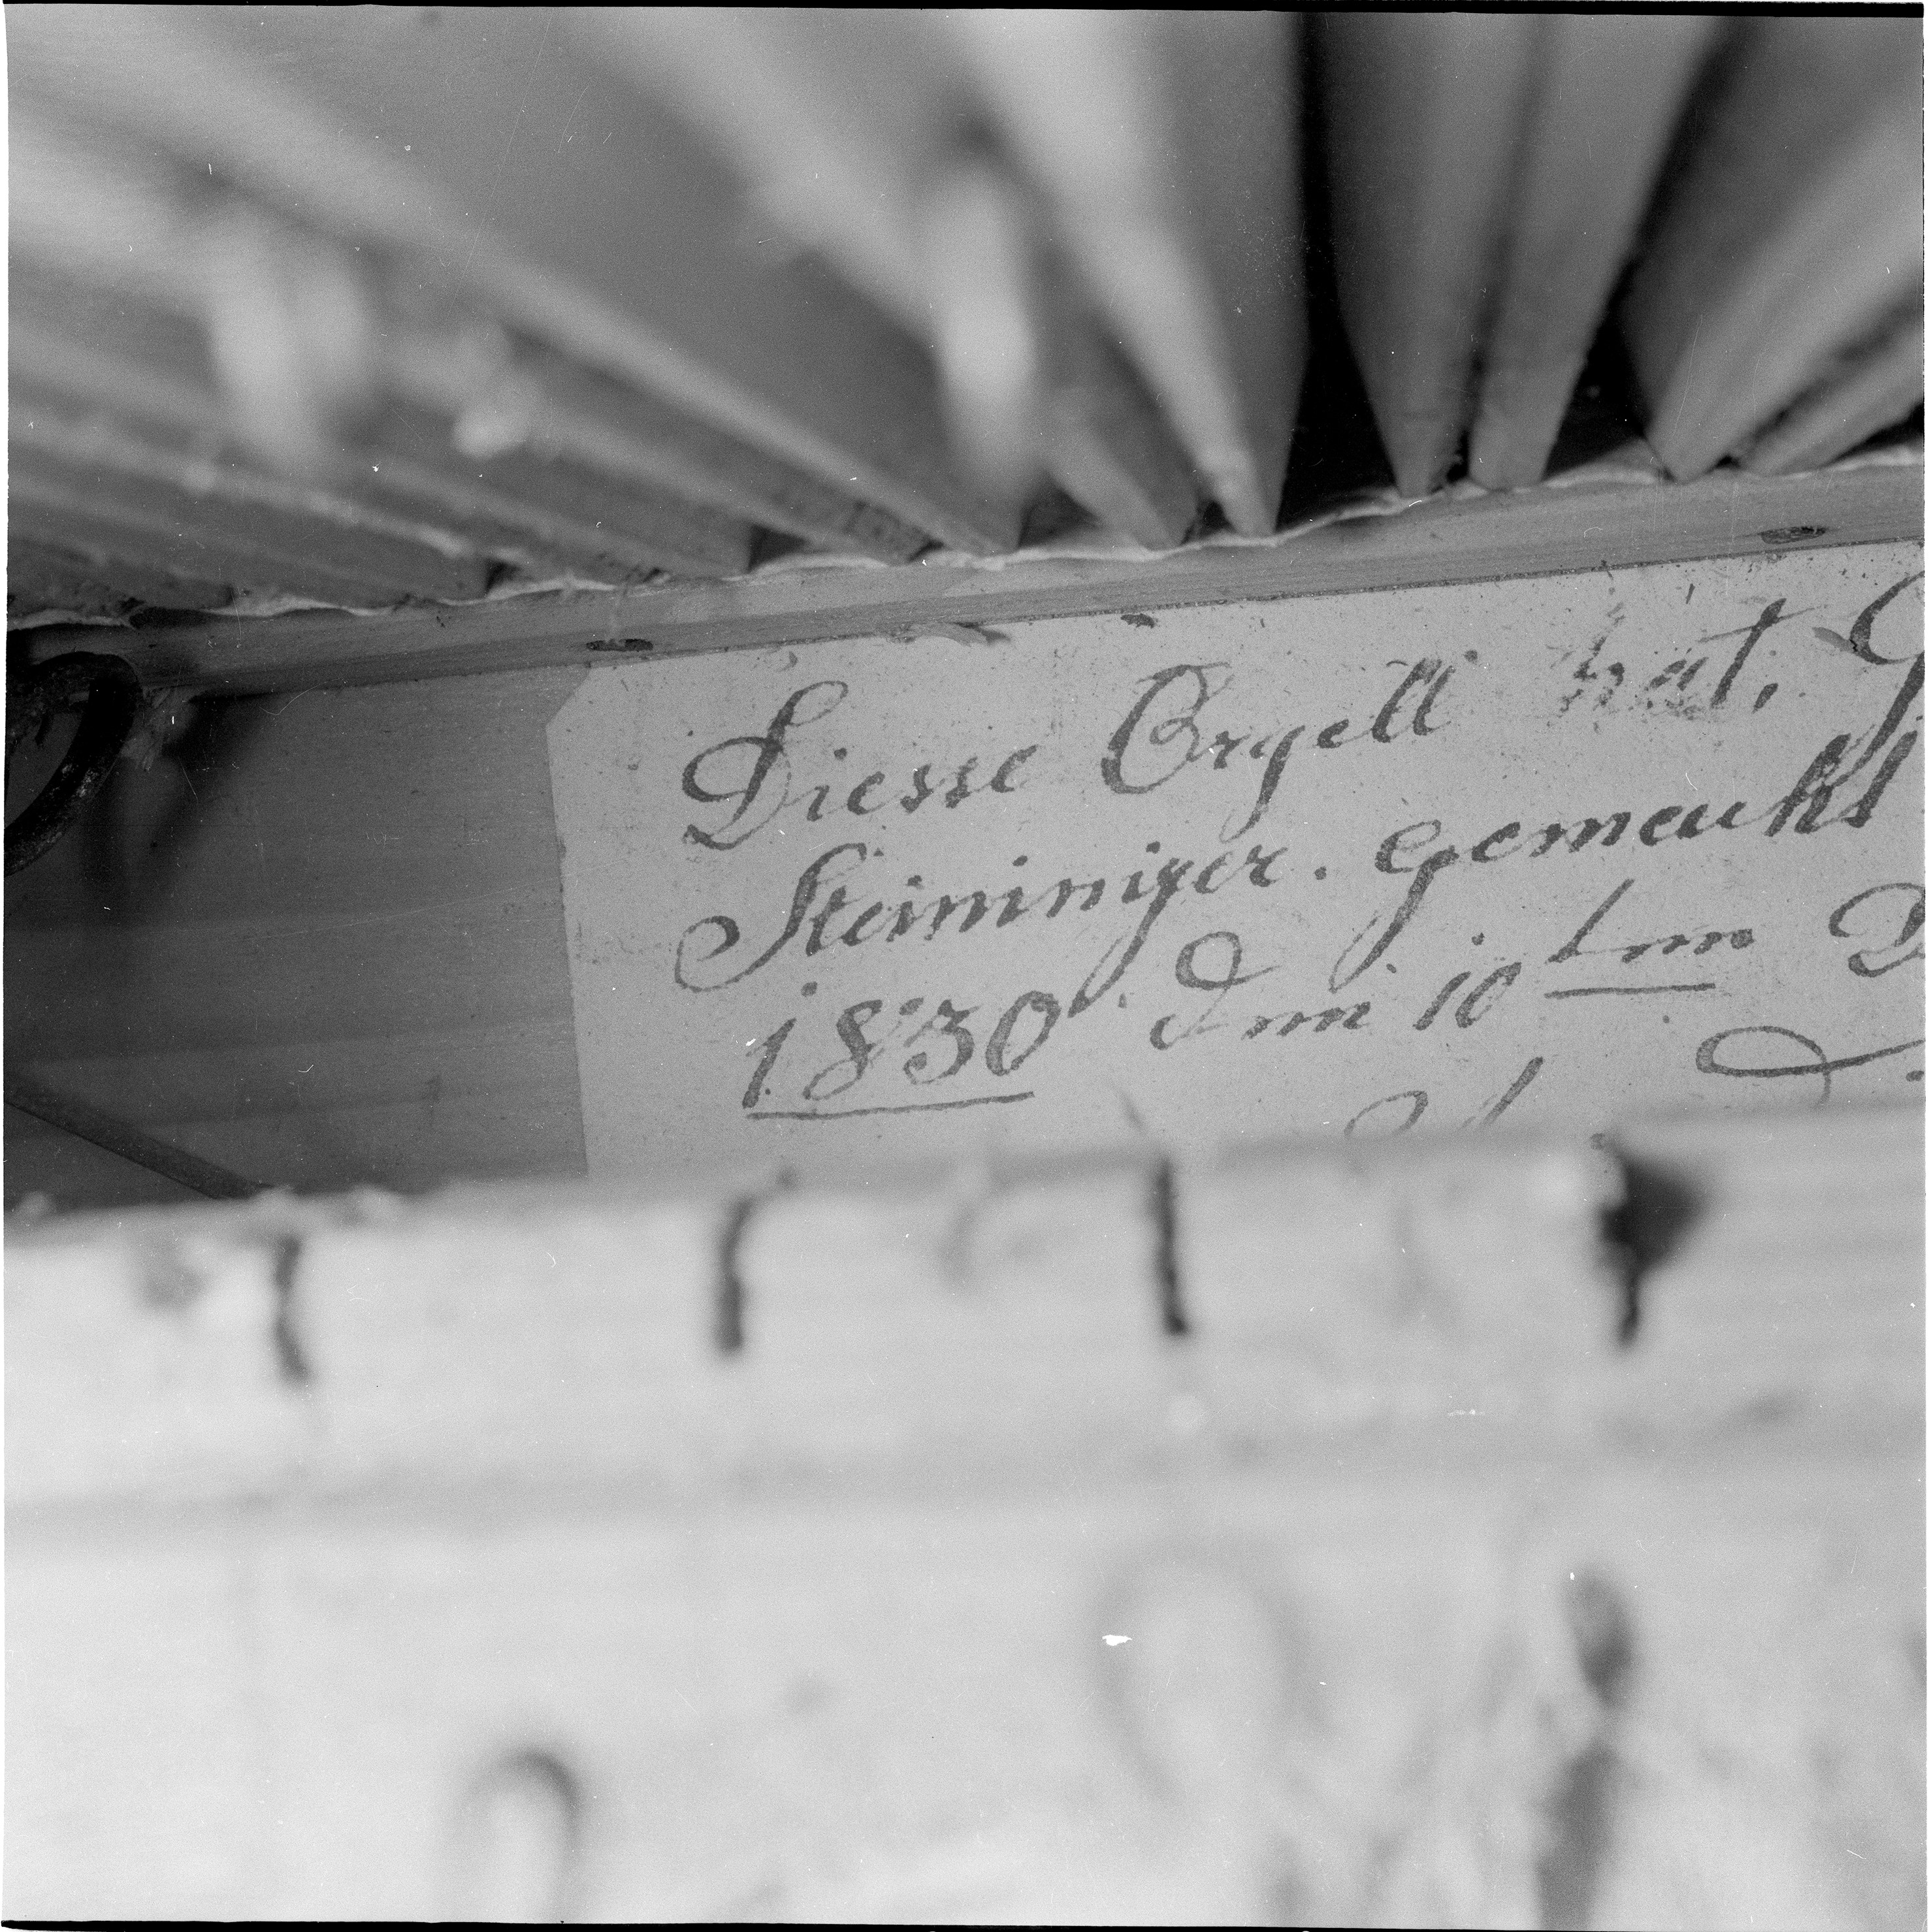 Diesse Orgell hat, G
Steininiger. gemaukt
1830 Dnn 10 tnn D